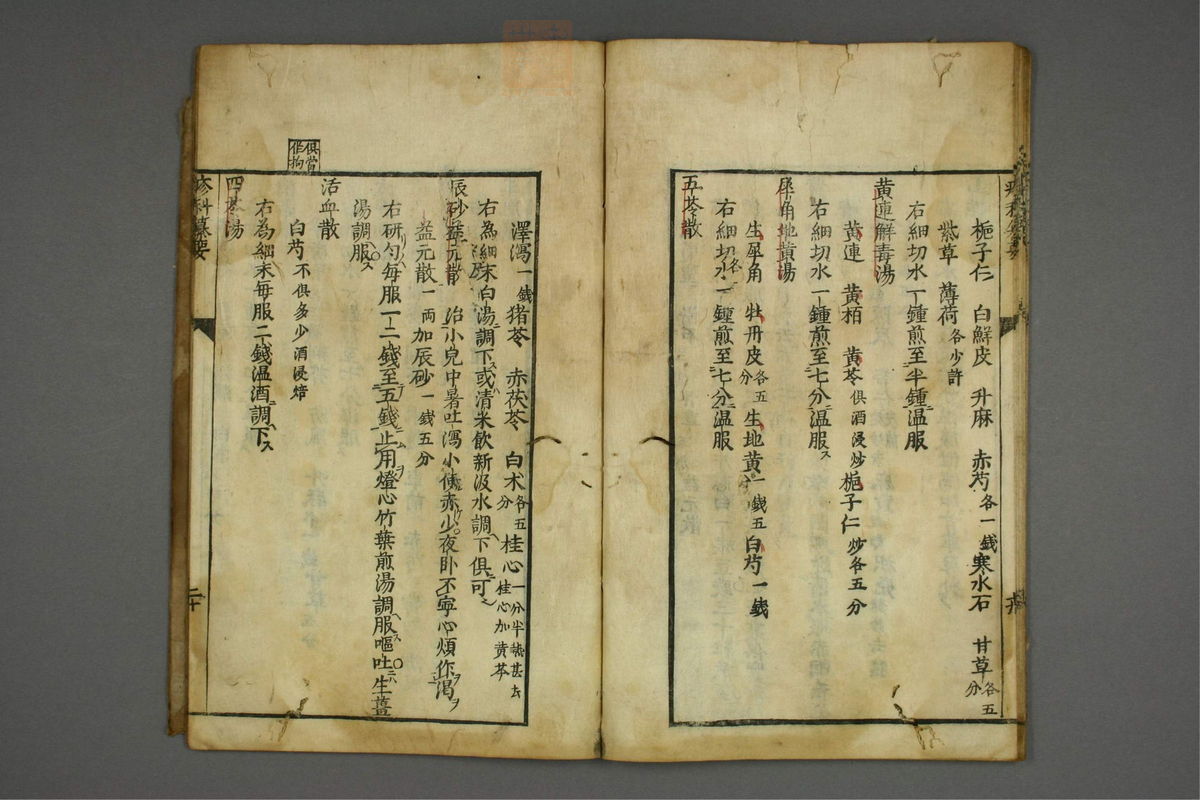 梔子仁 白鮮皮 升麻 赤芍各一錢寒水石 甘草各五分
紫草 薄荷各少許
右細切水一鍾煎至半鍾温服
黄連解毒湯
黄連 黄栢 黄芩俱酒浸炒梔子仁炒各五分
右細切水一鍾煎至七分温服ス
犀角地黄湯
生犀角 牡丹皮各五分 生地黄一錢五分 白芍一錢
右細切水一鍾煎至七分温服
五苓散
澤瀉一錢猪苓 赤茯苓 白术各五分桂心一分半熱甚去桂心加黄芩
右為細末白湯調下或清米飲新汲水調下俱可
辰砂益元散 治小兒中暑吐瀉小便赤少夜卧不寧心煩作渴
益元散一両加辰砂一錢五分
右研匀毎服一二錢至五錢止用燈心竹葉煎湯調服嘔吐生薑
湯調服ス
活血散
白芍不俱多少酒浸焙
右為細末毎服二錢温酒調下ス
四苓湯
俱當作拘
疹科纂要
二十